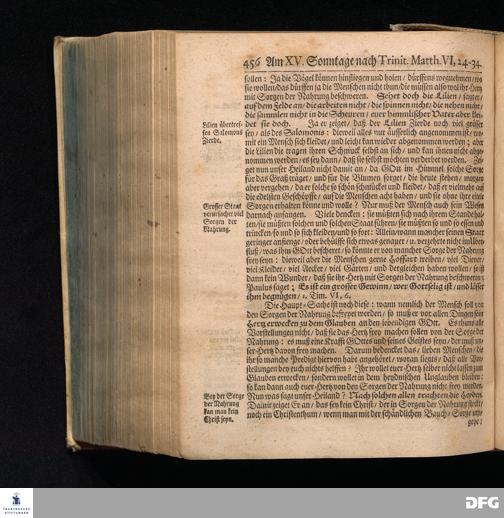 456 Am XV. Sonntage nach Trinit. Matth. VI, 24-34.
sollen: Ja die Vögel können hinfliegen und holen / dürffens wegnehmen / wo
sie wollen / das dürffen ja die Menschen nicht thun / die müssen also wol ihr Hertz
mit Sorgen der Nahrung beschweren. Sehet doch die Lilien / sagt er /
auf dem Felde an / die arbeiten nicht / die spinnen nicht / die nehen nicht /
die sammlen nicht in die Scheuren / euer himmlischer Vater aber klei-
det sie doch. Ja er zeiget / daß der Lilien Zierde noch viel grösser
sey / als des Salomonis: dieweil alles nur äusserlich angenommen ist / wo-
mit ein Mensch sich kleidet / und leicht kan wieder abgenommen werden; aber
die Lilien die tragen ihren Schmuck selbst an sich / und kan ihnen nicht abge-
nommen werden / es sey dann / daß sie selbst möchten verderbet werden. Zei-
get nun unser Heiland nicht damit an / da GOtt im Himmel solche Sorge
für das Graß träget / und für die Blumen sorget / die heute stehen / morgen
aber vergehen / da er solche so schön schmücket und kleidet / daß er vielmehr auf
die edelsten Geschöpffe / auf die Menschen acht haben / und sie ohne ihre eitele
Sorgen erhalten könne und wolle? Nur muß der Mensch auch sein Wesen
darnach anfangen. Viele dencken: sie müsten sich nach ihrem Stande hal-
ten / sie müsten solchen und solchen Staat führen / sie müsten so und so essen und
trincken / so und so sich kleiden / und so fort: Allein / wann mancher seinen Staat
geringer anfienge / oder behülffe sich etwas genauer / u. verzehrte nicht im Uber-
fluß / was ihm GOtt bescheret / so könnte er von mancher Sorge der Nahrung
frey seyn: dieweil aber die Menschen gerne Hoffart treiben / viel Diener /
viel Kleider / viel Aecker / viel Gärten / und dergleichen haben wollen / so ist
dann kein Wunder / daß sie ihr Hertz mit Sorgen der Nahrung beschweren:
Paulus saget; Es ist ein grosser Gewinn / wer Gottselig ist / und lässet
ihm begnügen / 1. Tim. VI, 6.
Die Haupt-Sache ist noch diese: wann nemlich der Mensch soll von
den Sorgen der Nahrung befreyet werden / so muß er vor allen Dingen sein
Hertz erwecken zu dem Glauben an den lebendigen GOtt. Es thuns alle
Vorstellungen nicht / daß sie das Hertz frey machen sollen von der Sorge der
Nahrung: es muß eine Krafft GOttes und seines Geistes seyn / der muß un-
ser Hertz davon frey machen. Darum bedencket das / lieben Menschen / die
ihr so manche Predigt hiervon habt angehöret / woran liegts / daß alle Vor-
stellungen bey euch nichts helffen? Ihr wollet euer Hertz selber nicht lassen zum
Glauben erwecken / sondern wollet in dem heydnischen Unglauben bleiben:
so kan dann auch euer Hertz von den Sorgen der Nahrung nicht frey werden.
Nun was sagt unser Heiland? Nach solchen allen trachten die Heyden.
Damit zeiget Er an / das sey kein Christ / der in Sorgen der Nahrung stecket /
noch ein Christenthum / wenn man mit der schändlichen Bauch-Sorge um-
gehe:
Lilien übertref-
fen Salomons
Zierde.
Grosser Staat
verursachet viel
Sorgen der
Nahrung.
Bey der Sorge
der Nahrung
kan man kein
Christ seyn.
FRANCKESCHE
STIFTUNGEN
DFG